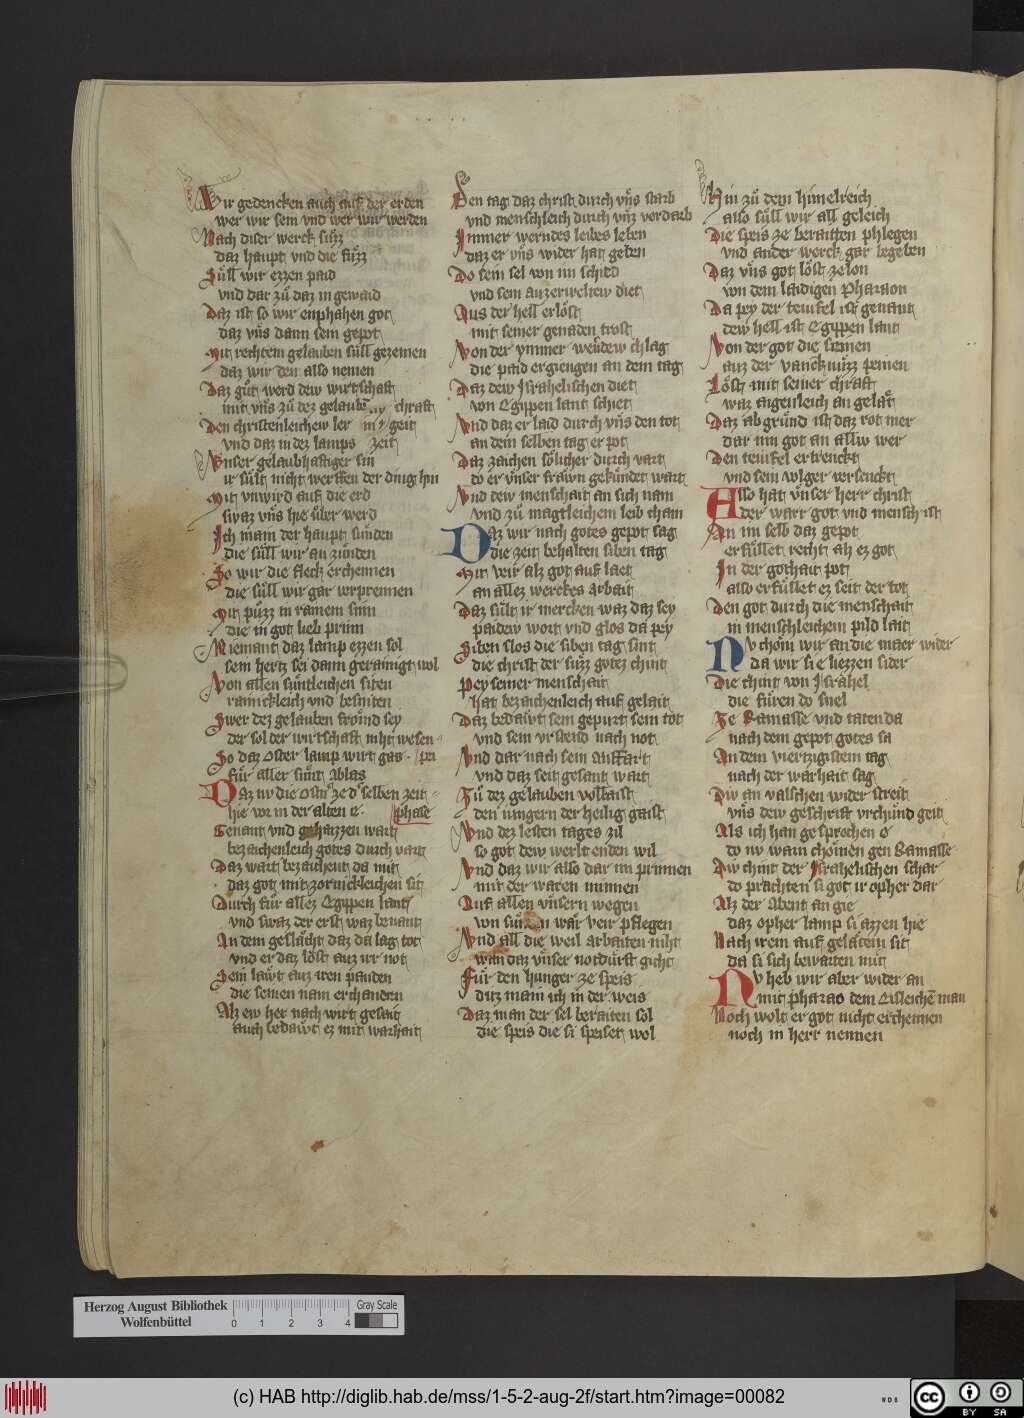 Wir gedencken auch auf der erden
wer wir sein vnd wer wir werden
Nach diser werck süzz
daz haupt vnd die füzz
Süll wir ezzen paid
vnd dar zů daz ingewaid
Daz ist so wir enphahen got
daz vns dann sein gepot
Mit rechtem gelauben süll gezemen
daz wir den also nemen
Daz gůt werd dew wirtschaft
mit vns zů dez gelauben chraft
Den christenleichew ler geit
vnd daz in dez lamps zeit
Vnser gelaubhaftiger sin
ir sült nicht werffen der ding hin
Mit vnwird auf die erd
swaz vns hie über werd
Ich main der haupt sünden
die süll wir an zünden
So wir die fleck erchennen
die süll wir gar vorprennen
Mit püzz in rainem sinn
die in got lieb prinn
Niemant daz lamp ezzen sol
sein hertz sei dann gerainigt wol
Von allen süntleichen siten
rainickleich vnd besniten
Swer dez gelauben frömd sey
der sol der wirtschaft niht wesen pei
So daz Oster lamp wirt gas
für aller sünt Ablas
Daz nv die selben zeit
hie vor in der alten e phase
Genant vnd gehaizzen wart
bezaichenleich gotes durch vart
Daz wart bezaichent da mit
daz got mit zornickleichen sit
Durch für allez Egyppen lant
vnd swaz der erst waz benant
An dem geslächt daz da lag tot
vnd er daz löst auz ir not
Sein läwt auz iren panden
die seinen nam erchanden
Alz ew her nach wirt gesait
auch bedäwt ez mit warhait
Den tag daz christ durch vns starb
vnd menschleich durch vnz verdarb
Immer werndes leibes leben
daz er vns wider hat geben
Do sein sel von im schied
vnd sein auzerweltew diet
Auz der hell erlöst
mit seiner genaden trost
Von der ymmer wernden chlag
die paid ergiengen an dem tag
Daz dew Israhelischen diet
von Egippen lant schiet
Vnd daz er laid durch vns den tot
an dem selben tag er pot
Daz zaichen sölicher durch vart
do er vnser frawn gekündet wart
Vnd dew menschait an sich nam
vnd zů magtleichem leib cham
Daz wir nach gotes gepot sag
die zeit behalten siben tag
Mit veir alz got auf laet
an allez werckes arbait
Daz sült ir mercken waz daz sey
paidew wort vnd glos da pey
Siben slos die siben tag sint
die christ der süzz gotez chint
Pey seiner menschait
hat bezaichenleich auf gelait
Daz bedäwt sein gepurt sein tot
vnd sein vrstend nach not
Vnd dar nach sein Auffart
vnd daz seit gesant wart
Zů dez gelauben vollaist
den iungern der heilig gaist
Vnd dez lesten tages zil
so got dew werlt enden wil
Vnd daz wir also dar im prinnen
mit der waren minnen
Auf allen vnsern wegen
von sünden wär veir pflegen
Vnd all die weil arbaiten niht
wan daz vnser notdurft gicht
Für den hunger ze speis
ditz main ich in der weis
Daz man der sel beraiten sol
die speis die si speiset wol
Hin zů dem himelreich
also süll wir all geleich
Die speis ze beraitten phlegen
vnd ander werck gar begeben
Daz vns got löst ze lon
von dem laidigen Pharaon
Da pey der teuifel ist genant
dew hell ist Egyppen lant
Von der got die seinen
auz der vanckhnüzz peinen
Löst mit seiner chraft
waz angenleich an gelät
Daz abgründ ist daz rot mer
dar inn got an alliu wer
Den teuifel ertrenckt
vnd sein volger versenckt
Also hat vnser herr christ
der warr got vnd mensch ist
An im selb daz gepot
erfüllet recht alz ez got
In der gothait pot
also erfüllet ez seit der tot
Den got durch die menschait
in menschleichem pild lait
Nv chöm wir an die maer wider
da wir si e liezzen sider
Die chint von Israhel
die füren do snel
Ze Ramasse vnd taten da
nach dem gepot gotes sa
An dem viertzigistem tag
nach der warhait sag
Diw an valschen wider streit
vns dew geschrift vrchünd geit
Als ich han gesprochen e
do nv warn chömen gen Ramasse
Diw chint der Israhelischen schar
do prachten si got ir opher dar
Alz der Abent an gie
daz opher lamp si azzen hie
Nach irem auf gelätem sit
da si sich bewarten mit
Nv heb wir aber wider an
mit pharao dem Eisleichen man
Noch wolt er got nicht erchennen
noch in herr nennen
Herzog August Bibliothek
Wolfenbüttel
0 1 2 3 4
Gray Scale
(c) HAB http://diglib.hab.de/mss/1-5-2-aug-2f/start.htm?image=00082
WDB
cc BY SA